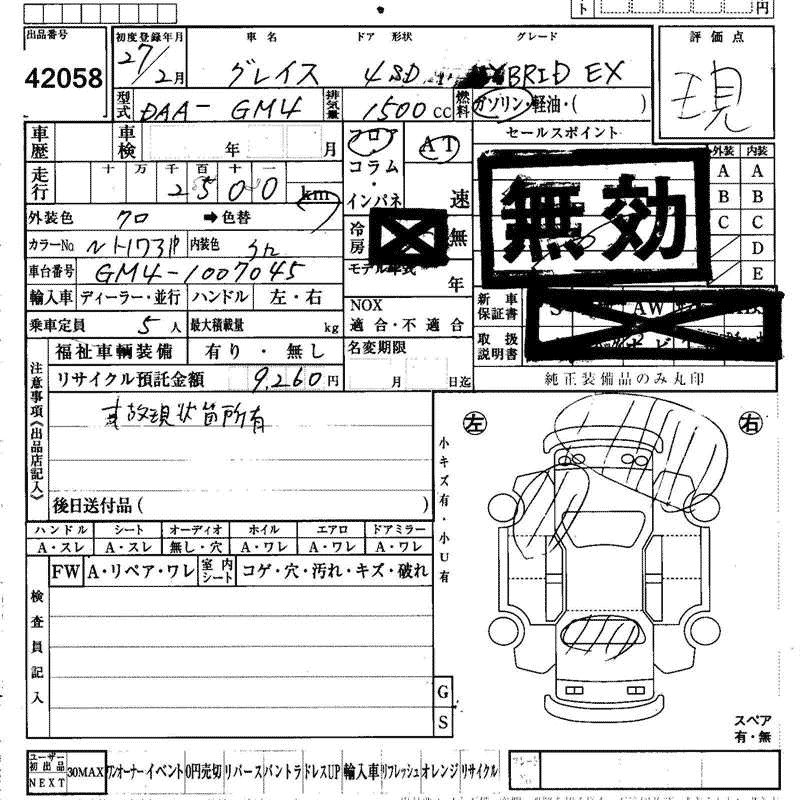 ト 円
出品番号 初度登録年月 車名 ドア 形状 グレード 評価点
42058 27/2月 グレイス 4SD HYBRID EX 現
型式 DAA-GM4 排気量 1500cc 燃料 ガソリン・軽油・( )
車歴 車検 年 月 フロア AT セールスポイント
走行 十 万 千 百 十 一 コラム・インパネ 速 外装 内装
2500 km
無効
外装色 クロ ➡色替 冷房 無
カラーNo 内装色
車台番号 GM4-1007045 モデル年式 年
A A
B B
C C
D
E
輸入車 ディーラー・並行 ハンドル 左・右 NOX 適合・不適合
新車保証書 S AW
乗車定員 5人 最大積載量 kg
取扱説明書
福祉車輌装備 有り・無し 名変期限 月 日迄
リサイクル預託金額 9,260円 純正装備品のみ丸印
注意事項《出品店記入》
事故現状箇所有
後日送付品( )
左 右
小キズ有・小U有
ハンドル シート オーディオ ホイル エアロ ドアミラー
A・スレ A・スレ 無し・穴 A・ワレ A・ワレ A・ワレ
検査員記入
FW A・リペア・ワレ 室内シート コゲ・穴・汚れ・キズ・破れ
G
S
スペア
有・無
ユーザー初出品 NEXT 30MAX ワンオーナー イベント 0円売切 リバース バントラ ドレスUP 輸入車 リフレッシュ オレンジ リサイクル